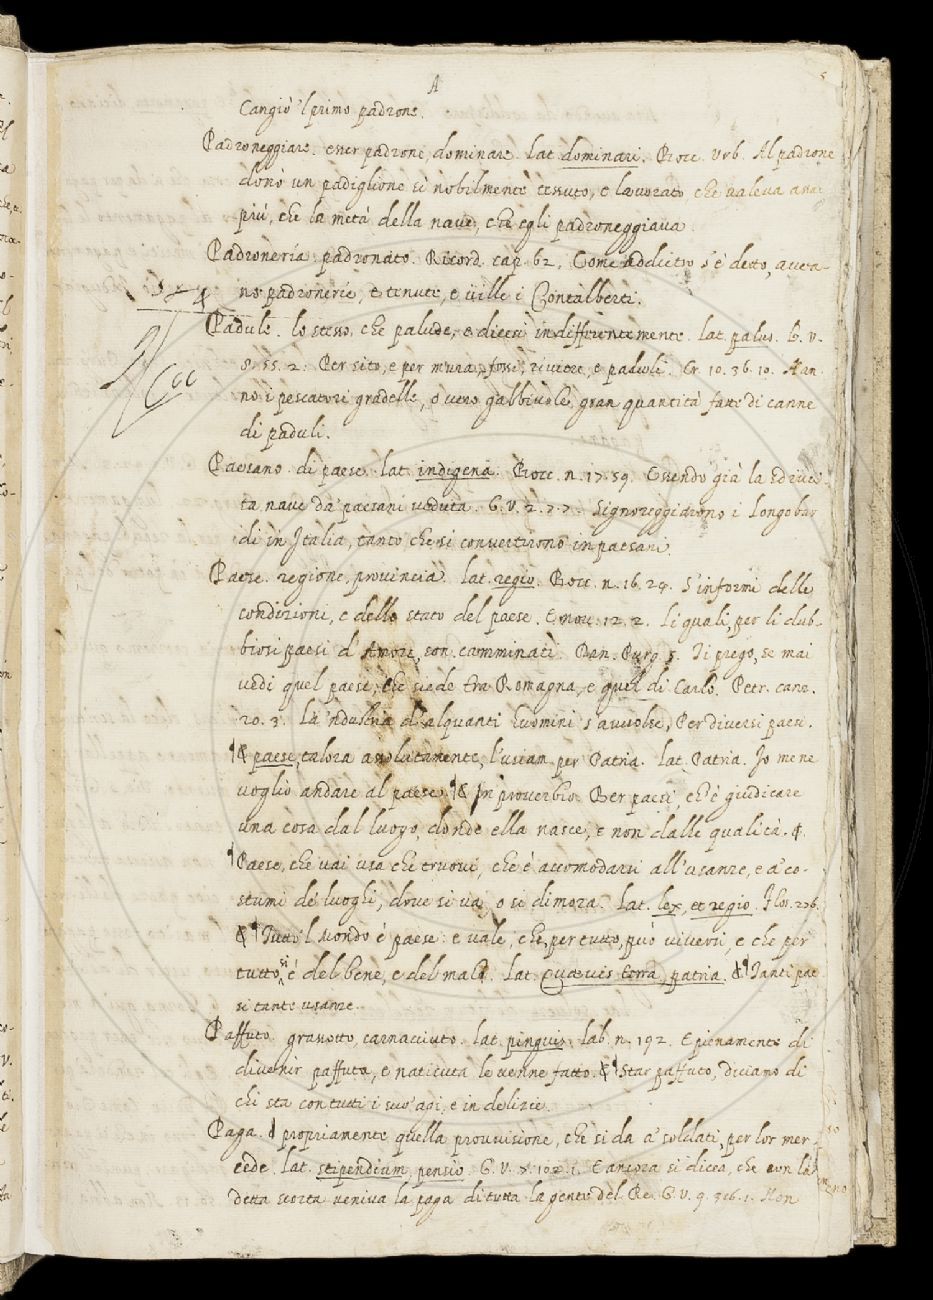 A
5
Cangiò 'l primo padrone.
Padroneggiare. esser padrone, dominare. Lat. dominari. Bocc. Urb. Al padrone
donò un padiglione sì nobilmente tenuto, e lavorato che valeva assai
più, che la metà della nave, che egli padroneggiava
Padroneria. padronato. Ricord. cap. 62. Come addietro s'è detto, avea-
no padronerie, e tenute, e ville i Contalberti.
Padule. lo stesso, che palude, e dicesi indifferentemente. lat. palus. G. V.
8. 55. 2. Per sito, e per mura, fossi, riviere, e paduli. Cr. 10. 36. 10. Han-
no i pescatori gradelle, o vero gabbiuole, gran quantità fatte di canne
di paduli.
Paesano. di paese. lat. indigena. Bocc. n. 17. 59. Essendo già la sdruci-
ta nave da' paesani veduta. G. V. 2. 7. 7. Signoreggiarono i Longobar
di in Italia, tanto che si convertirono in paesani.
Paese. regione, provincia. lat. regio. Bocc. n. 16. 29. S'informi delle
condizioni, e dello stato del paese. E nov. 12. 2. Li quali, per li dub-
biosi paesi d'Amore, son camminati. Dan. Purg. 5. Ti prego, se mai
vedi quel paese, che siede tra Romagna, e quel di Carlo. Petr. canz.
20. 3. La 'ndustria d'alquanti huomini s'avvolse, Per diversi paesi.
¶ & paese, talora assolutamente, l'usiam per Patria. lat. Patria. Io me ne
voglio andare al paese. ¶ & In proverbio. Per paesi, ch'è giudicare
una cosa dal luogo, donde ella nasce, e non dalle qualità. &.
¶ Paese, che vai usa che truovi, che è accomodarsi all'usanze, e a' co-
stumi de' luoghi, dove si va, o si dimora. Lat. lex, et regio. Flos. 276.
& ¶ Tutto 'l Mondo è paese: e vale, che, per tutto, può viversi, e che per
tutto si è del bene, e del male. lat. Quaevis terra, patria. & ¶ Tanti pae
si tante usanze.
Paffuto. grassotto, carnaciuto. lat. pinguis. Lab. n. 192. E pienamente di
divenir paffuta, e naticuta le venne fatto. & ¶ Star paffuto, diciamo di
chi sta con tutti i suo' agi, e in delizie.
Paga. propriamente quella provvisione, che si da a' soldati, per lor mer-
cede. lat. stipendium, pensio. G. V. 8. 102. 1. E ancora si dicea, che con la
detta scorta veniva la paga di tutta la gente del Re. G. V. 9. 306. 1. Non